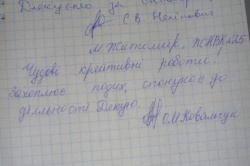 Дякуємо за
С. В. Непипович
м. Житомир,
Чудові креативні роботи!
Захоплює подих, спонукає до
діяльності. Дякую.
О.М. Ковальчук